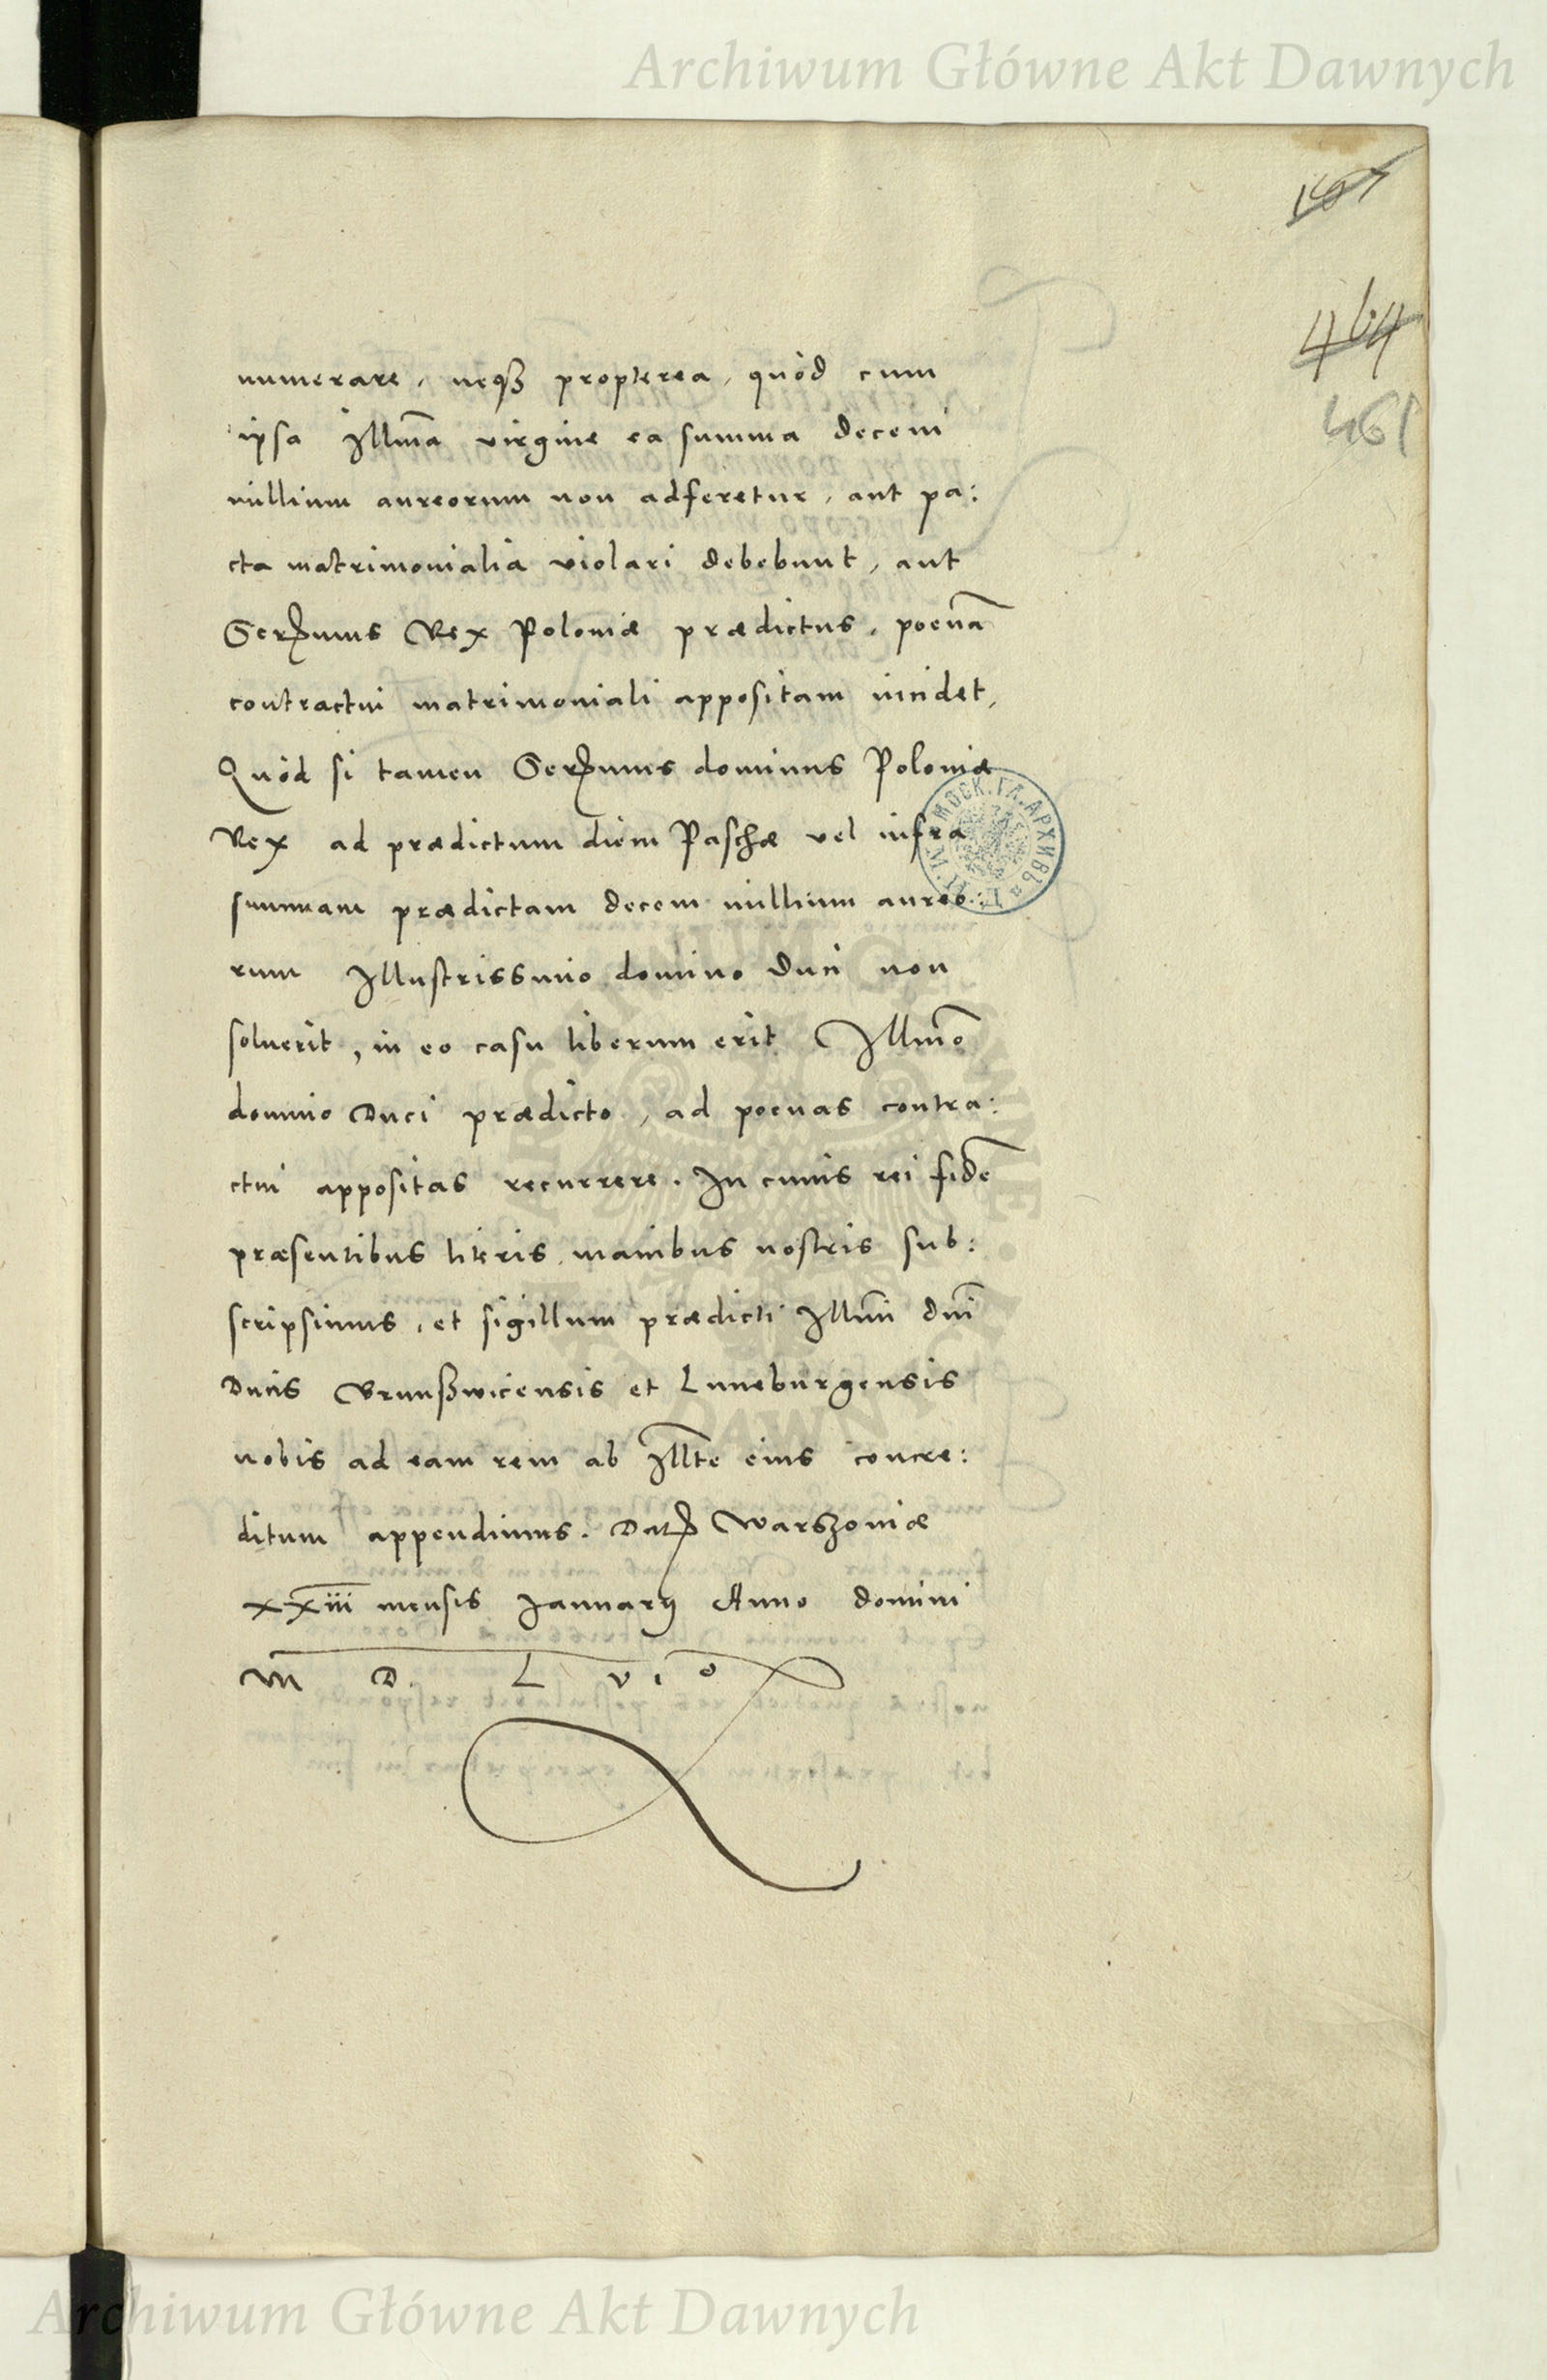 Archiwum Główne Akt Dawnych
464
461
numerare, neqꝫ propterea, quòd cum
ipsa Illmã virgine ea summa decem
millium aureorum non adferetur, aut pa:
cta matrimonialia violari debebunt, aut
Serꝑmus Rex Poloniæ prædictus, poenã
contractui matrimoniali appositam incidet,
Quòd si tamen Serꝑmus dominus Poloniæ
Rex ad prædictum diem Paschæ vel infra
summam prædictam decem millium aureo:
rum Illustrissimo domino Duci non
soluerit, in eo casu liberum erit Illmõ
domino Duci prædicto, ad poenas contra:
ctui appositas recurrere. In cuius rei fidẽ
præsentibus literis manibus nostris sub:
scripsimus, et sigillum prædicti Illmi dni
Ducis Brunßwicensis et Luneburgensis
nobis ad eam rem ab Illte eius concre:
ditum appendimus. Datꝭ Warszoviæ
xxiii mensis Januarij Anno domini
M D. L vi o
МОСК. ГЛ. АРХИВЪ
Archiwum Główne Akt Dawnych